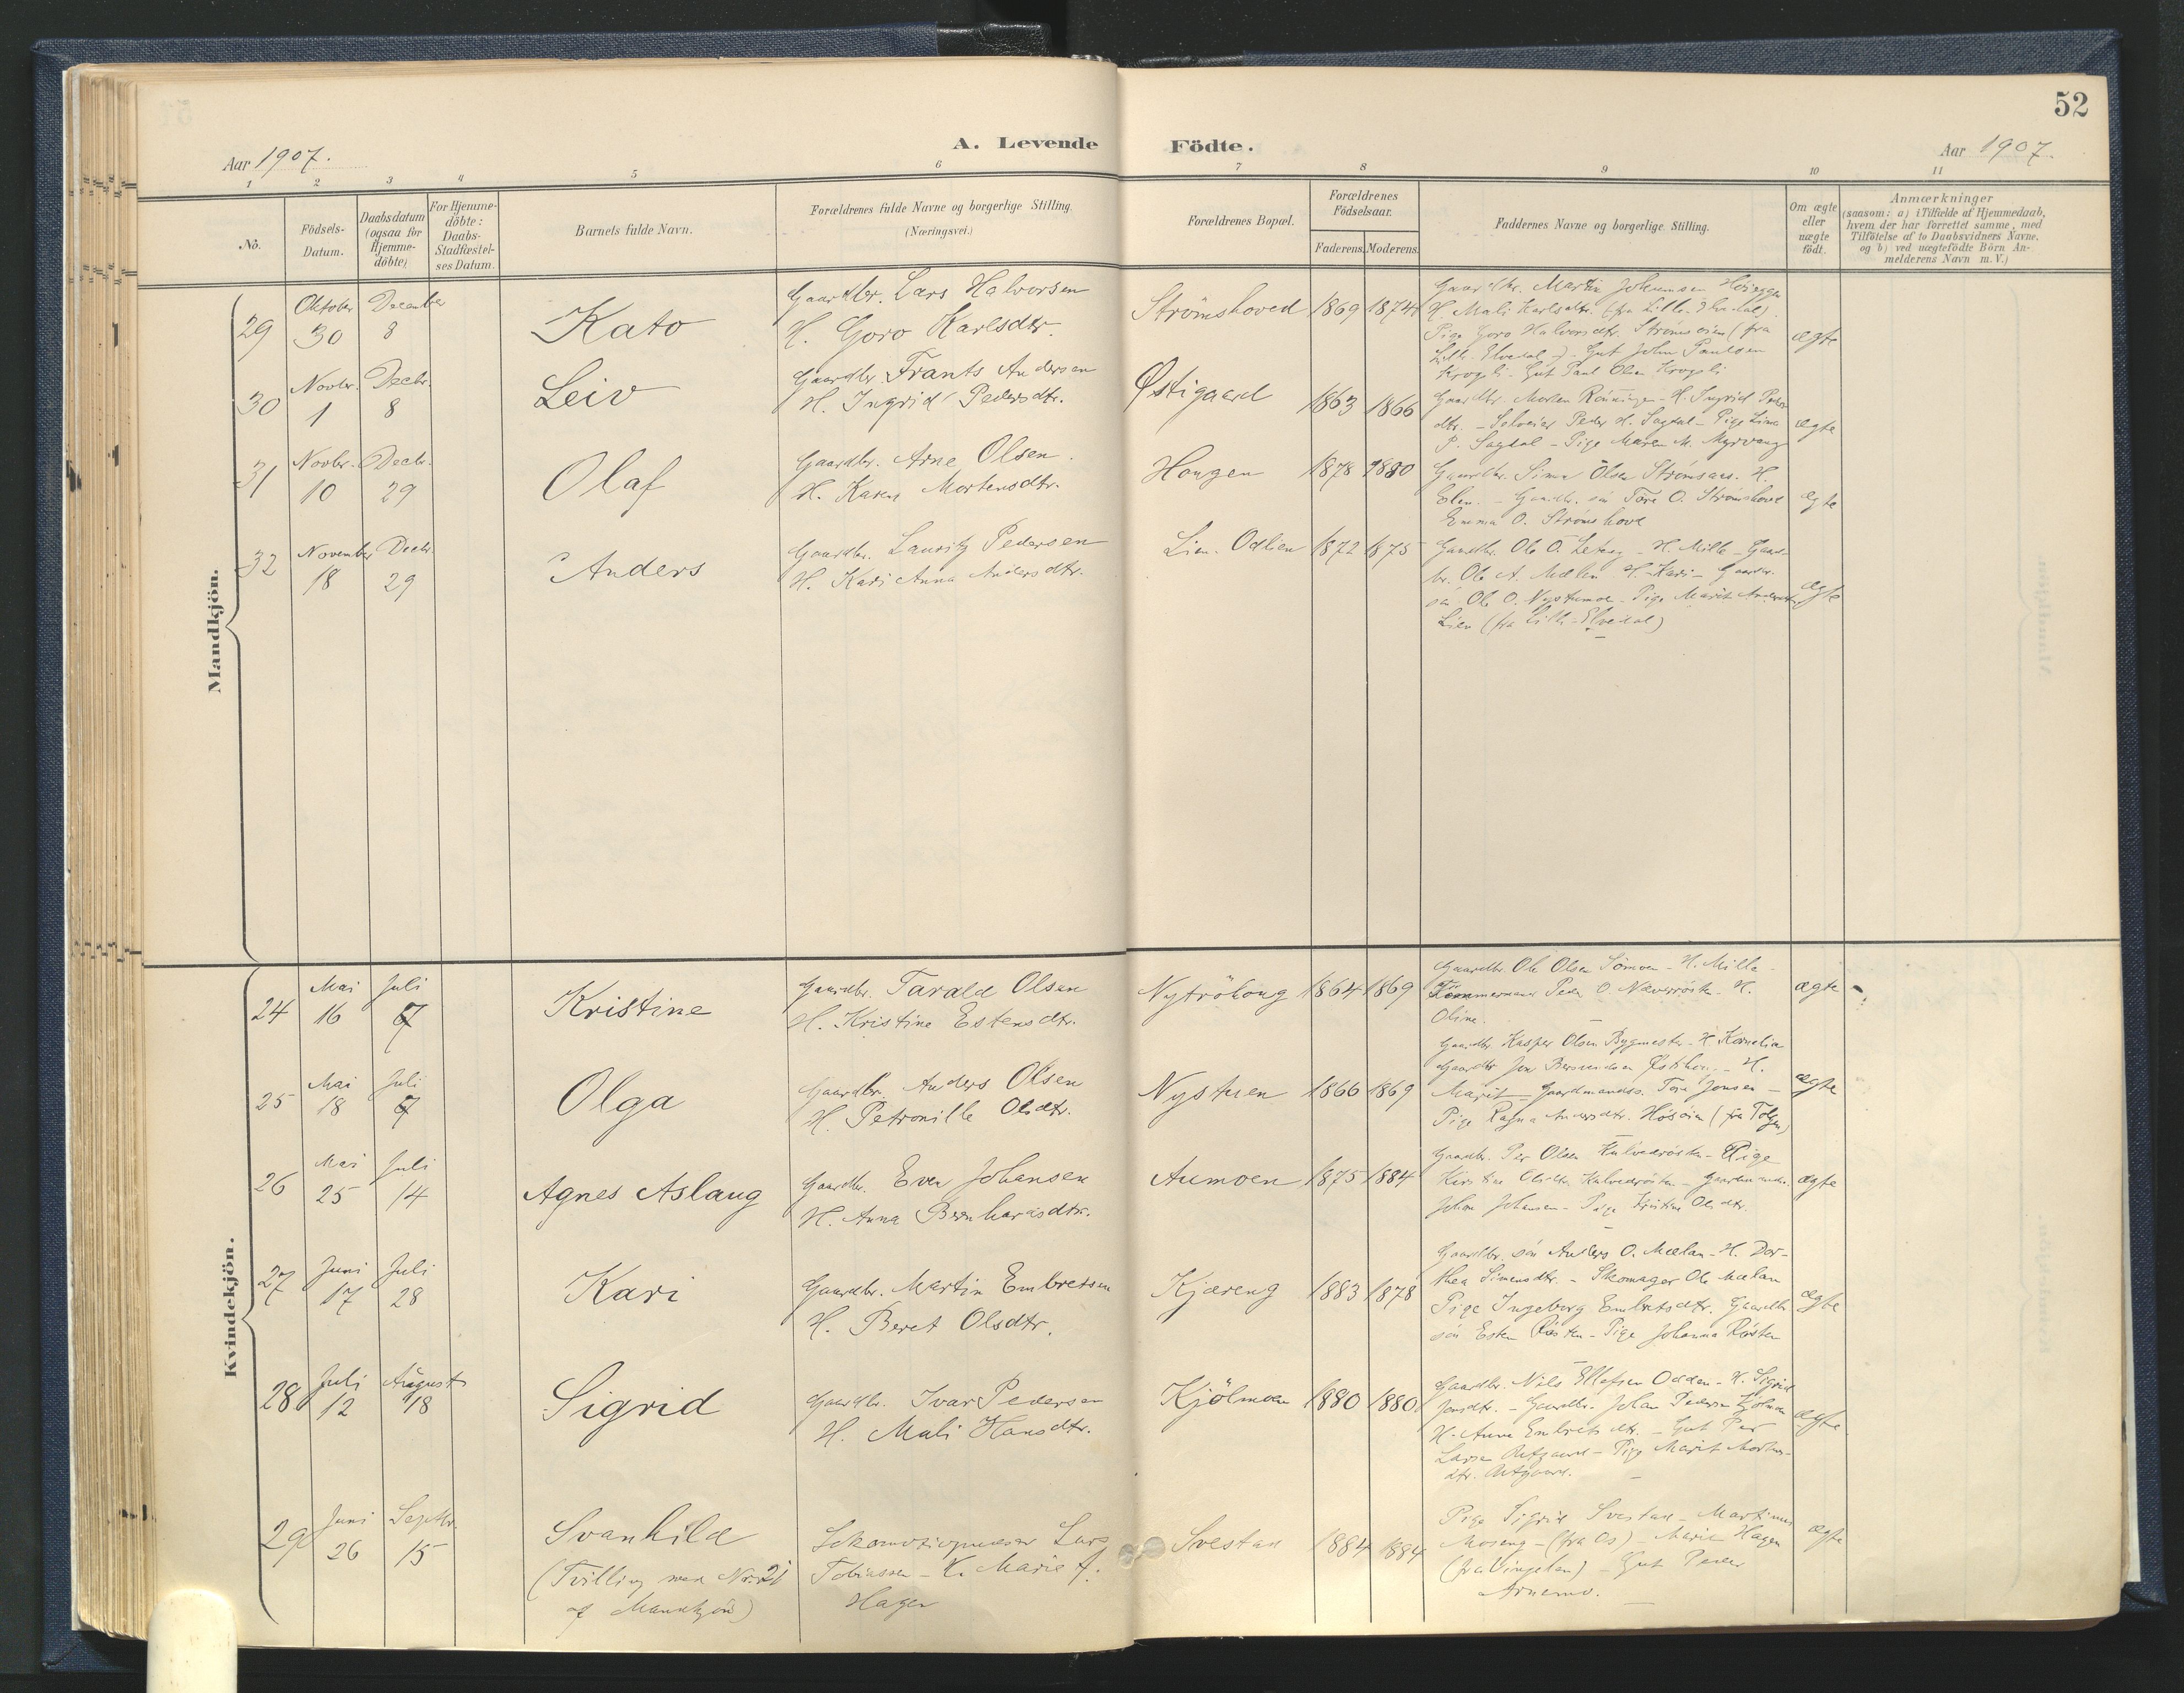 52
Aar 1907.
A. Levende Födte.
Aar 1907.
1 2 3 4 5 6 7 8 9 10 11
No.
Födsels-Datum.
Daabsdatum (ogsaa for Hjemme-döbte)
For Hjemme-döbte: Daabs-Stadfæstel-ses Datum.
Barnets fulde Navn.
Forældrenes fulde Navne og borgerlige Stilling.
(Næringsvei.)
Forældrenes Bopæl.
Forældrenes Födselsaar.
Faderens. Moderens.
Faddernes Navne og borgerlige Stilling.
Om ægte eller uægte födt.
Anmærkninger
(saasom: a) i Tilfælde af Hjemmedaab,
hvem der har forrettet samme, med
Tilföielse af to Daabsvidners Navne,
og b) ved uægtefödte Börn An-
melderens Navn m. V.)
Mandkjön.
29 Oktober 30 December 8
Kato
Gaardbr. Lars Halvorsen
H. Goro Karlsdtr.
Strömshoved 1869 1874
Gaardbr. Martin Johannsen
H. Mali Karlsdtr. (fra Lille-Elvedal).
Pige Goro Halvorsdtr. Strömsöien (fra
Lille-Elvedal) - Gut John Paulsen
Krogsli - Gut Paul Olsen Krogsli
ægte
30 Novbr. 1 Decbr. 8
Leiv
Gaardbr. Frants Andersen
H. Ingrid Pedersdtr.
Østigaard 1863 1866
Gaardbr. Morten Rönningen - H. Ingrid Peder
dtr. - Selveier Peder H. Sagdal - Pige Lina
P. Sagdal - Pige Maren M. Myrvang
ægte
31 Novbr. 10 Decbr. 29
Olaf
Gaardbr. Arne Olsen.
H. Karen Mortensdtr.
Hougen 1878 1880
Gaardbr. Simen Olsen Strömsaas. H.
Elen. - Gaardbr. sön Tore O. Strömshove
Emma O. Strömshove
ægte
32 November 18 Decbr. 29
Anders
Gaardbr. Lauritz Pedersen
H. Kari Anna Andersdtr.
Lien. Odlien 1872 1875
Gaardbr. Ole O. - H. Mille - Gaard-
br. Ole A. Mælen H. Kari - Gaardbr.
sön Ole O. Nystumoe - Pige Marit Andersdtr.
Lien (fra Lille-Elvedal)
ægte
Kvindekjön.
24 Mai 16 Juli 7
Kristine
Gaardbr. Tarald Olsen
H. Kristine Estensdtr.
Nytröhöug 1864 1869
Gaardbr. Ole Olsen Tömoen - H. Mille
Tömmermand Peder O. Næverrösten - H.
Oline.
ægte
25 Mai 18 Juli 7
Olga
Gaardbr. Anders Olsen
H. Petronille Olsdtr.
Nystuen 1866 1869
Gaardbr. Kasper Olsen Bygmester - H. Kornelia
Gaardbr. Jon - H.
Marit - Gaardmands. Tore Jonsen -
Pige Ragna Andersdtr. Hösöien (fra Tolgen)
ægte
26 Mai 25 Juli 14
Agnes Aslaug
Gaardbr. Even Johansen
H. Anna Bernhardsdtr.
Aumoen 1875 1884
Gaardbr. Per Olsen Kulvedrösten - Pige
Kirstine Olsdtr. Kulvedrösten - Gaardmands.
Johan Johansen - Pige Kristine Olsdtr.
ægte
27 Juni 17 Juli 28
Kari
Gaardbr. Martin Embretsen
H. Beret Olsdtr.
Kjæreng 1883 1878
Gaardbr. sön Anders O. Mælan - H. Dor-
thea Simensdtr. - Skomager Ole Mælan
Pige Ingeborg Embretsdtr. Gaardbr.
sön Esten Rösten - Pige Johanna Rösten
ægte
28 Juli 12 August 18
Sigrid
Gaardbr. Ivar Pedersen
H. Mali Hansdtr.
Kjölmoen 1880 1880
Gaardbr. Nils Ellefsen Odden - H. Sigrid
Jonsdtr. - Gaardbr. Johan Pedersen Kjölmoen
H. Anne Embretsdtr. - Gut Per
Larsen - Pige Marit Mortens-
dtr.
ægte
29 Juni 26 Septbr. 15
Svanhild
(Tvilling med No. 21
af Mandkjön)
Lokomotivpudser Lars
Tobiassen - K. Marie f.
Hagen
Svestad 1884 1884
Pige Sigrid Svestad - Martinus
Moseng - (fra Os) - Marie Hagen
(fra Vingelen) - Gut Peder
Arnemo.
ægte